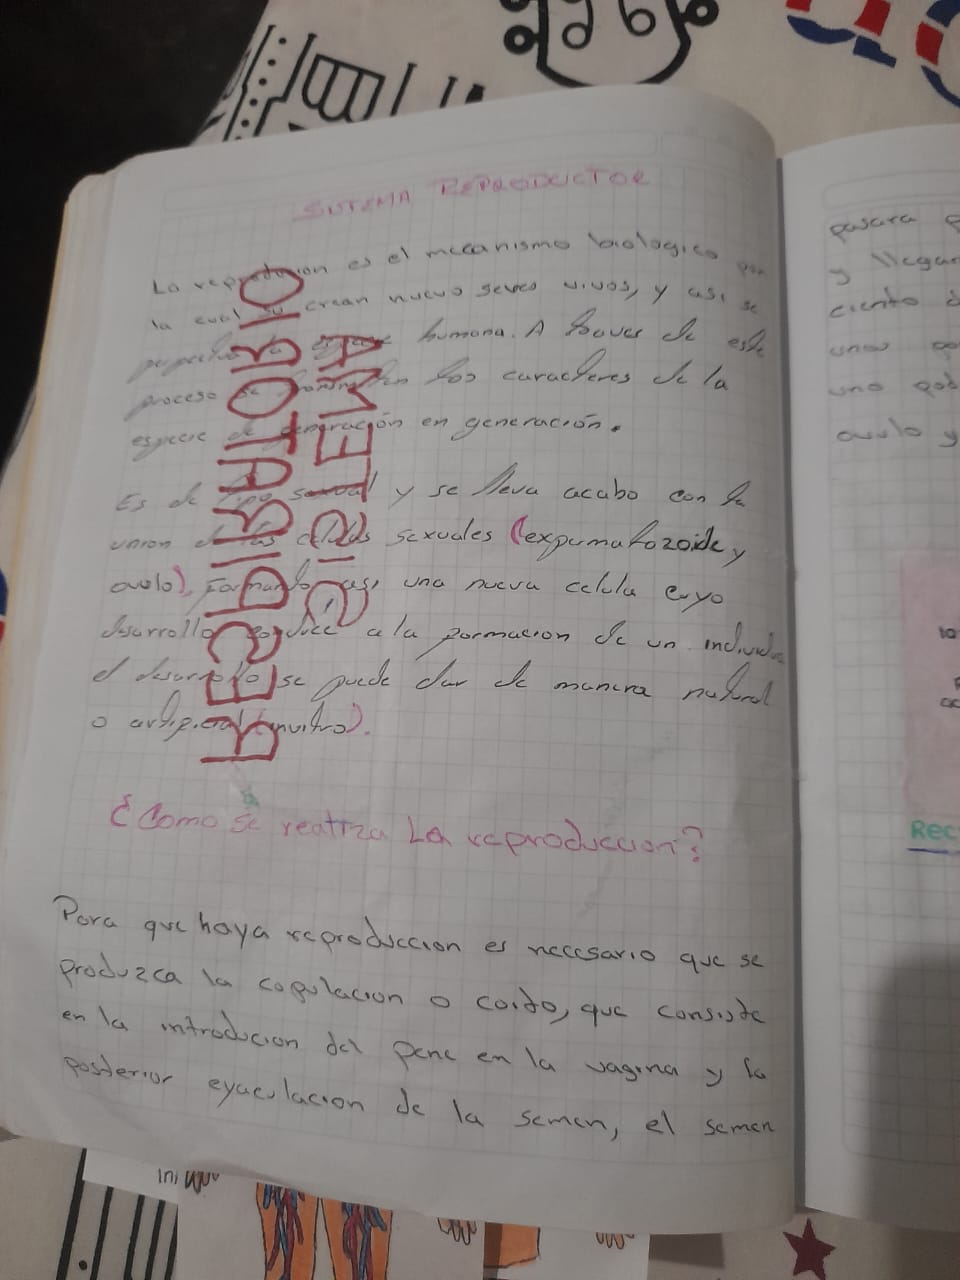 SISTEMA REPRODUCTOR
La reproducion es el mecanismo biologico por
la cual se crean nuevo seres vivos, y asi se
perpetua la especie humana. A traves de este
proceso se transmiten los caracteres de la
especie de generación en generación.
Es de tipo sexual y se lleva acabo con la
union de las celulas sexuales (expermatozoide y
ovulo), Formando asi una nueva celula cuyo
desarrollo conduce a la formacion de un individuo
el desarrollo se puede dar de manera natural
o artificial (invitro).
RESPIRATORIO
SISTEMA
¿Como se realiza La reproduccion?
Para que haya reproduccion es necesario que se
produzca la copulacion o coito, que consiste
en la introducion del pene en la vagina y la
posterior eyaculacion de la semen, el semen
pasara
y llegar
ciento
unas
uno
ovulo y
REC